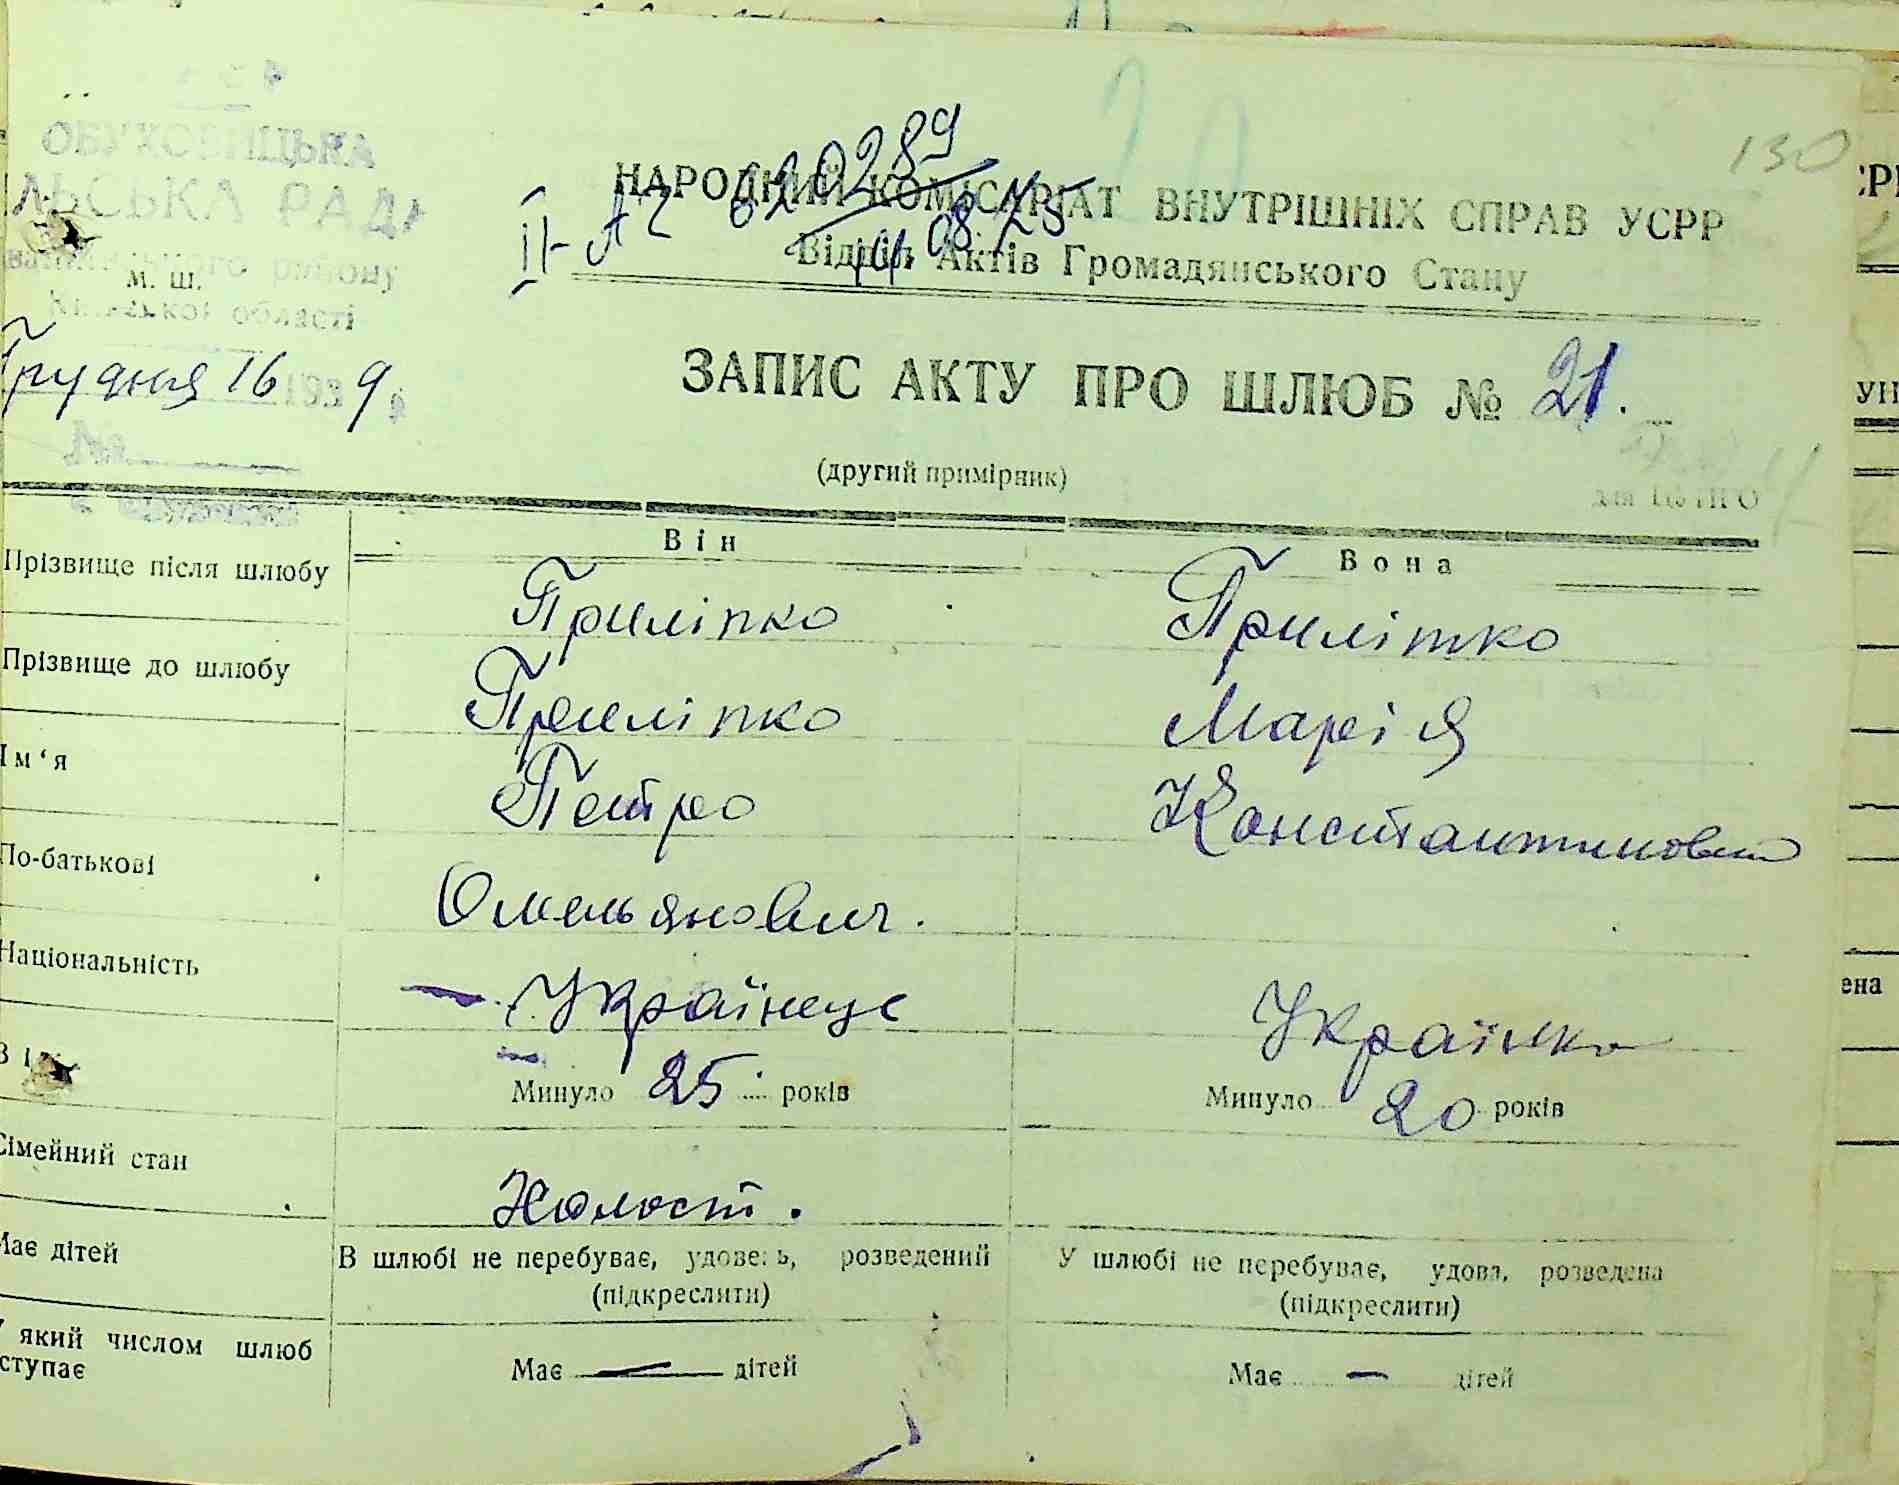 130
ОБУХОВИЦЬКА
РАДА
району
області
М. Ш.
Грудня 16 1939 р.
№
II-АС 620289
04 08 75
НАРОДНИЙ КОМІСАРІАТ ВНУТРІШНІХ СПРАВ УСРР
Відділ Актів Громадянського Стану
ЗАПИС АКТУ ПРО ШЛЮБ № 21.
(другий примірник)
для
Він Вона
Прізвище після шлюбу Приліпко Приліпко
Прізвище до шлюбу Приліпко Марія
Ім‘я Петро Константиновна
По-батькові Омельянович.
Національність Українець Українка
Минуло 25 років Минуло 20 років
Сімейний стан Холост.
Має дітей В шлюбі не перебуває, удовець, розведений У шлюбі не перебуває, удова, розведена
(підкреслити) (підкреслити)
У який числом шлюб
вступає Має — дітей Має — дітей
ена